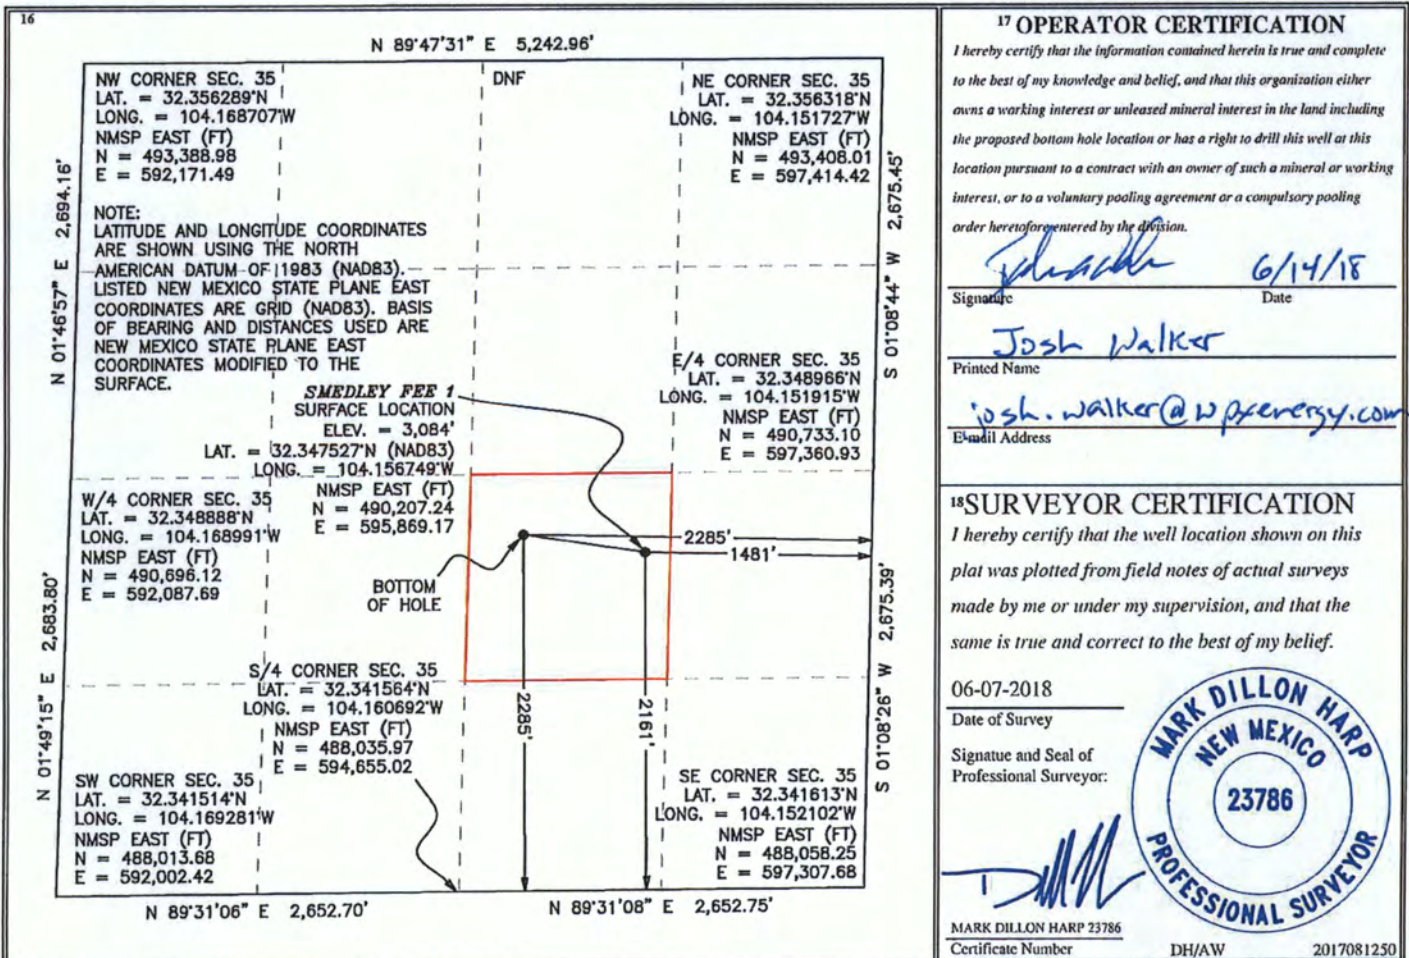 16
N 89°47'31" E 5,242.96'
NW CORNER SEC. 35
LAT. = 32.356289°N
LONG. = 104.168707°W
NMSP EAST (FT)
N = 493,388.98
E = 592,171.49
DNF
NE CORNER SEC. 35
LAT. = 32.356318°N
LONG. = 104.151727°W
NMSP EAST (FT)
N = 493,408.01
E = 597,414.42
N 01°46'57" E 2,694.16'
S 01°08'44" W 2,675.45'
NOTE:
LATITUDE AND LONGITUDE COORDINATES
ARE SHOWN USING THE NORTH
AMERICAN DATUM OF 1983 (NAD83).
LISTED NEW MEXICO STATE PLANE EAST
COORDINATES ARE GRID (NAD83). BASIS
OF BEARING AND DISTANCES USED ARE
NEW MEXICO STATE PLANE EAST
COORDINATES MODIFIED TO THE
SURFACE.
SMEDLEY FEE 1
SURFACE LOCATION
ELEV. = 3,084'
LAT. = 32.347527°N (NAD83)
LONG. = 104.156749°W
NMSP EAST (FT)
N = 490,207.24
E = 595,869.17
E/4 CORNER SEC. 35
LAT. = 32.348966°N
LONG. = 104.151915°W
NMSP EAST (FT)
N = 490,733.10
E = 597,360.93
W/4 CORNER SEC. 35
LAT. = 32.348888°N
LONG. = 104.168991°W
NMSP EAST (FT)
N = 490,696.12
E = 592,087.69
2285'
1481'
BOTTOM
OF HOLE
N 01°49'15" E 2,683.80'
S 01°08'26" W 2,675.39'
2285'
2161'
S/4 CORNER SEC. 35
LAT. = 32.341564°N
LONG. = 104.160692°W
NMSP EAST (FT)
N = 488,035.97
E = 594,655.02
SW CORNER SEC. 35
LAT. = 32.341514°N
LONG. = 104.169281°W
NMSP EAST (FT)
N = 488,013.68
E = 592,002.42
SE CORNER SEC. 35
LAT. = 32.341613°N
LONG. = 104.152102°W
NMSP EAST (FT)
N = 488,058.25
E = 597,307.68
N 89°31'06" E 2,652.70'
N 89°31'08" E 2,652.75'
17 OPERATOR CERTIFICATION
I hereby certify that the information contained herein is true and complete
to the best of my knowledge and belief, and that this organization either
owns a working interest or unleased mineral interest in the land including
the proposed bottom hole location or has a right to drill this well at this
location pursuant to a contract with an owner of such a mineral or working
interest, or to a voluntary pooling agreement or a compulsory pooling
order heretofore entered by the division.
6/14/18
Signature Date
Josh Walker
Printed Name
josh.walker@wpxenergy.com
E-mail Address
18 SURVEYOR CERTIFICATION
I hereby certify that the well location shown on this
plat was plotted from field notes of actual surveys
made by me or under my supervision, and that the
same is true and correct to the best of my belief.
06-07-2018
Date of Survey
Signatue and Seal of
Professional Surveyor:
MARK DILLON HARP
NEW MEXICO
23786
PROFESSIONAL SURVEYOR
MARK DILLON HARP 23786
Certificate Number DH/AW 2017081250